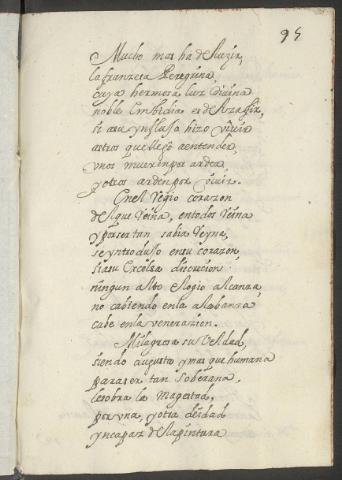 95
Mucho mas ha de luzir,
la franzesa Peregrina
cuya hermosa luz Divina
noble embidia es de
si a su ynfluxo hizo viuir
astros que llegó a entender,
vnos mueren por arder
y otros arden por viuir.
En el Regio corazon
de que Reina, en todos Reina
y por ser tan sabia Reyna,
se yntroduxo en su corazon,
si a su excelsa discrecion
ningun alto elogio alcanza
no cabiendo en la alabanza
cabe en la venerazion.
Milagrosa su Deidad,
siendo augusta y mas que humana
para ser tan soberana,
le sobra la Magestad,
por vna, y otra deidad
yncapaz de la pintura